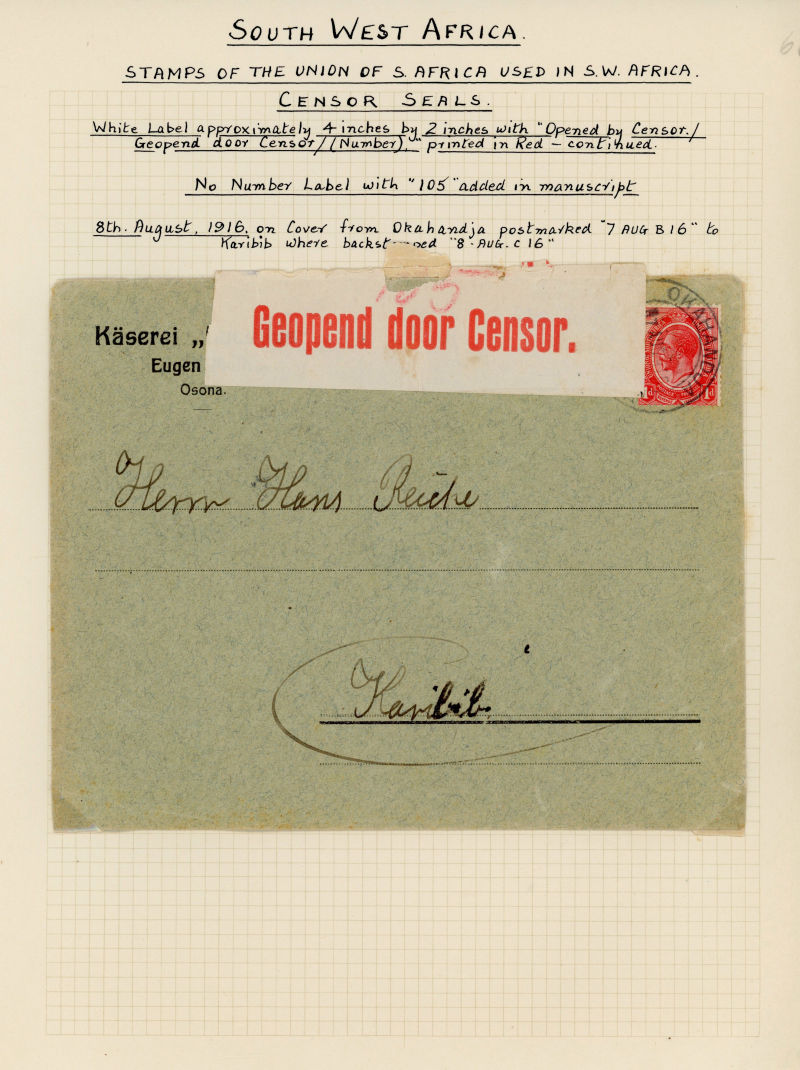 SOUTH WEST AFRICA.
STAMPS OF THE UNION OF S. AFRICA USED IN S.W. AFRICA.
CENSOR SEALS.
White Label approximately 4 inches by 2 inches with "Opened by Censor./
Geopend door Censor/(Number)," printed in Red – continued.
No Number Label with "105" added in manuscript
8th. August, 1916. on Cover from Okahandja postmarked "7 AUG B 16" to
Karibib where "8 · AUG. C 16"
105
Geopend door Censor.
OKAHANDJA
Käserei „
Eugen
Osona.
1d 1d
Herrn Hans Reiche
Karibib.